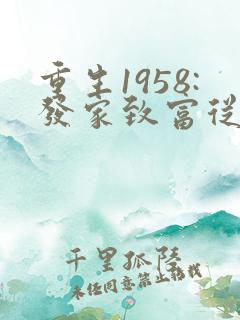 重生1958:
發家致富從
千里孤陸
未經同意禁止轉載